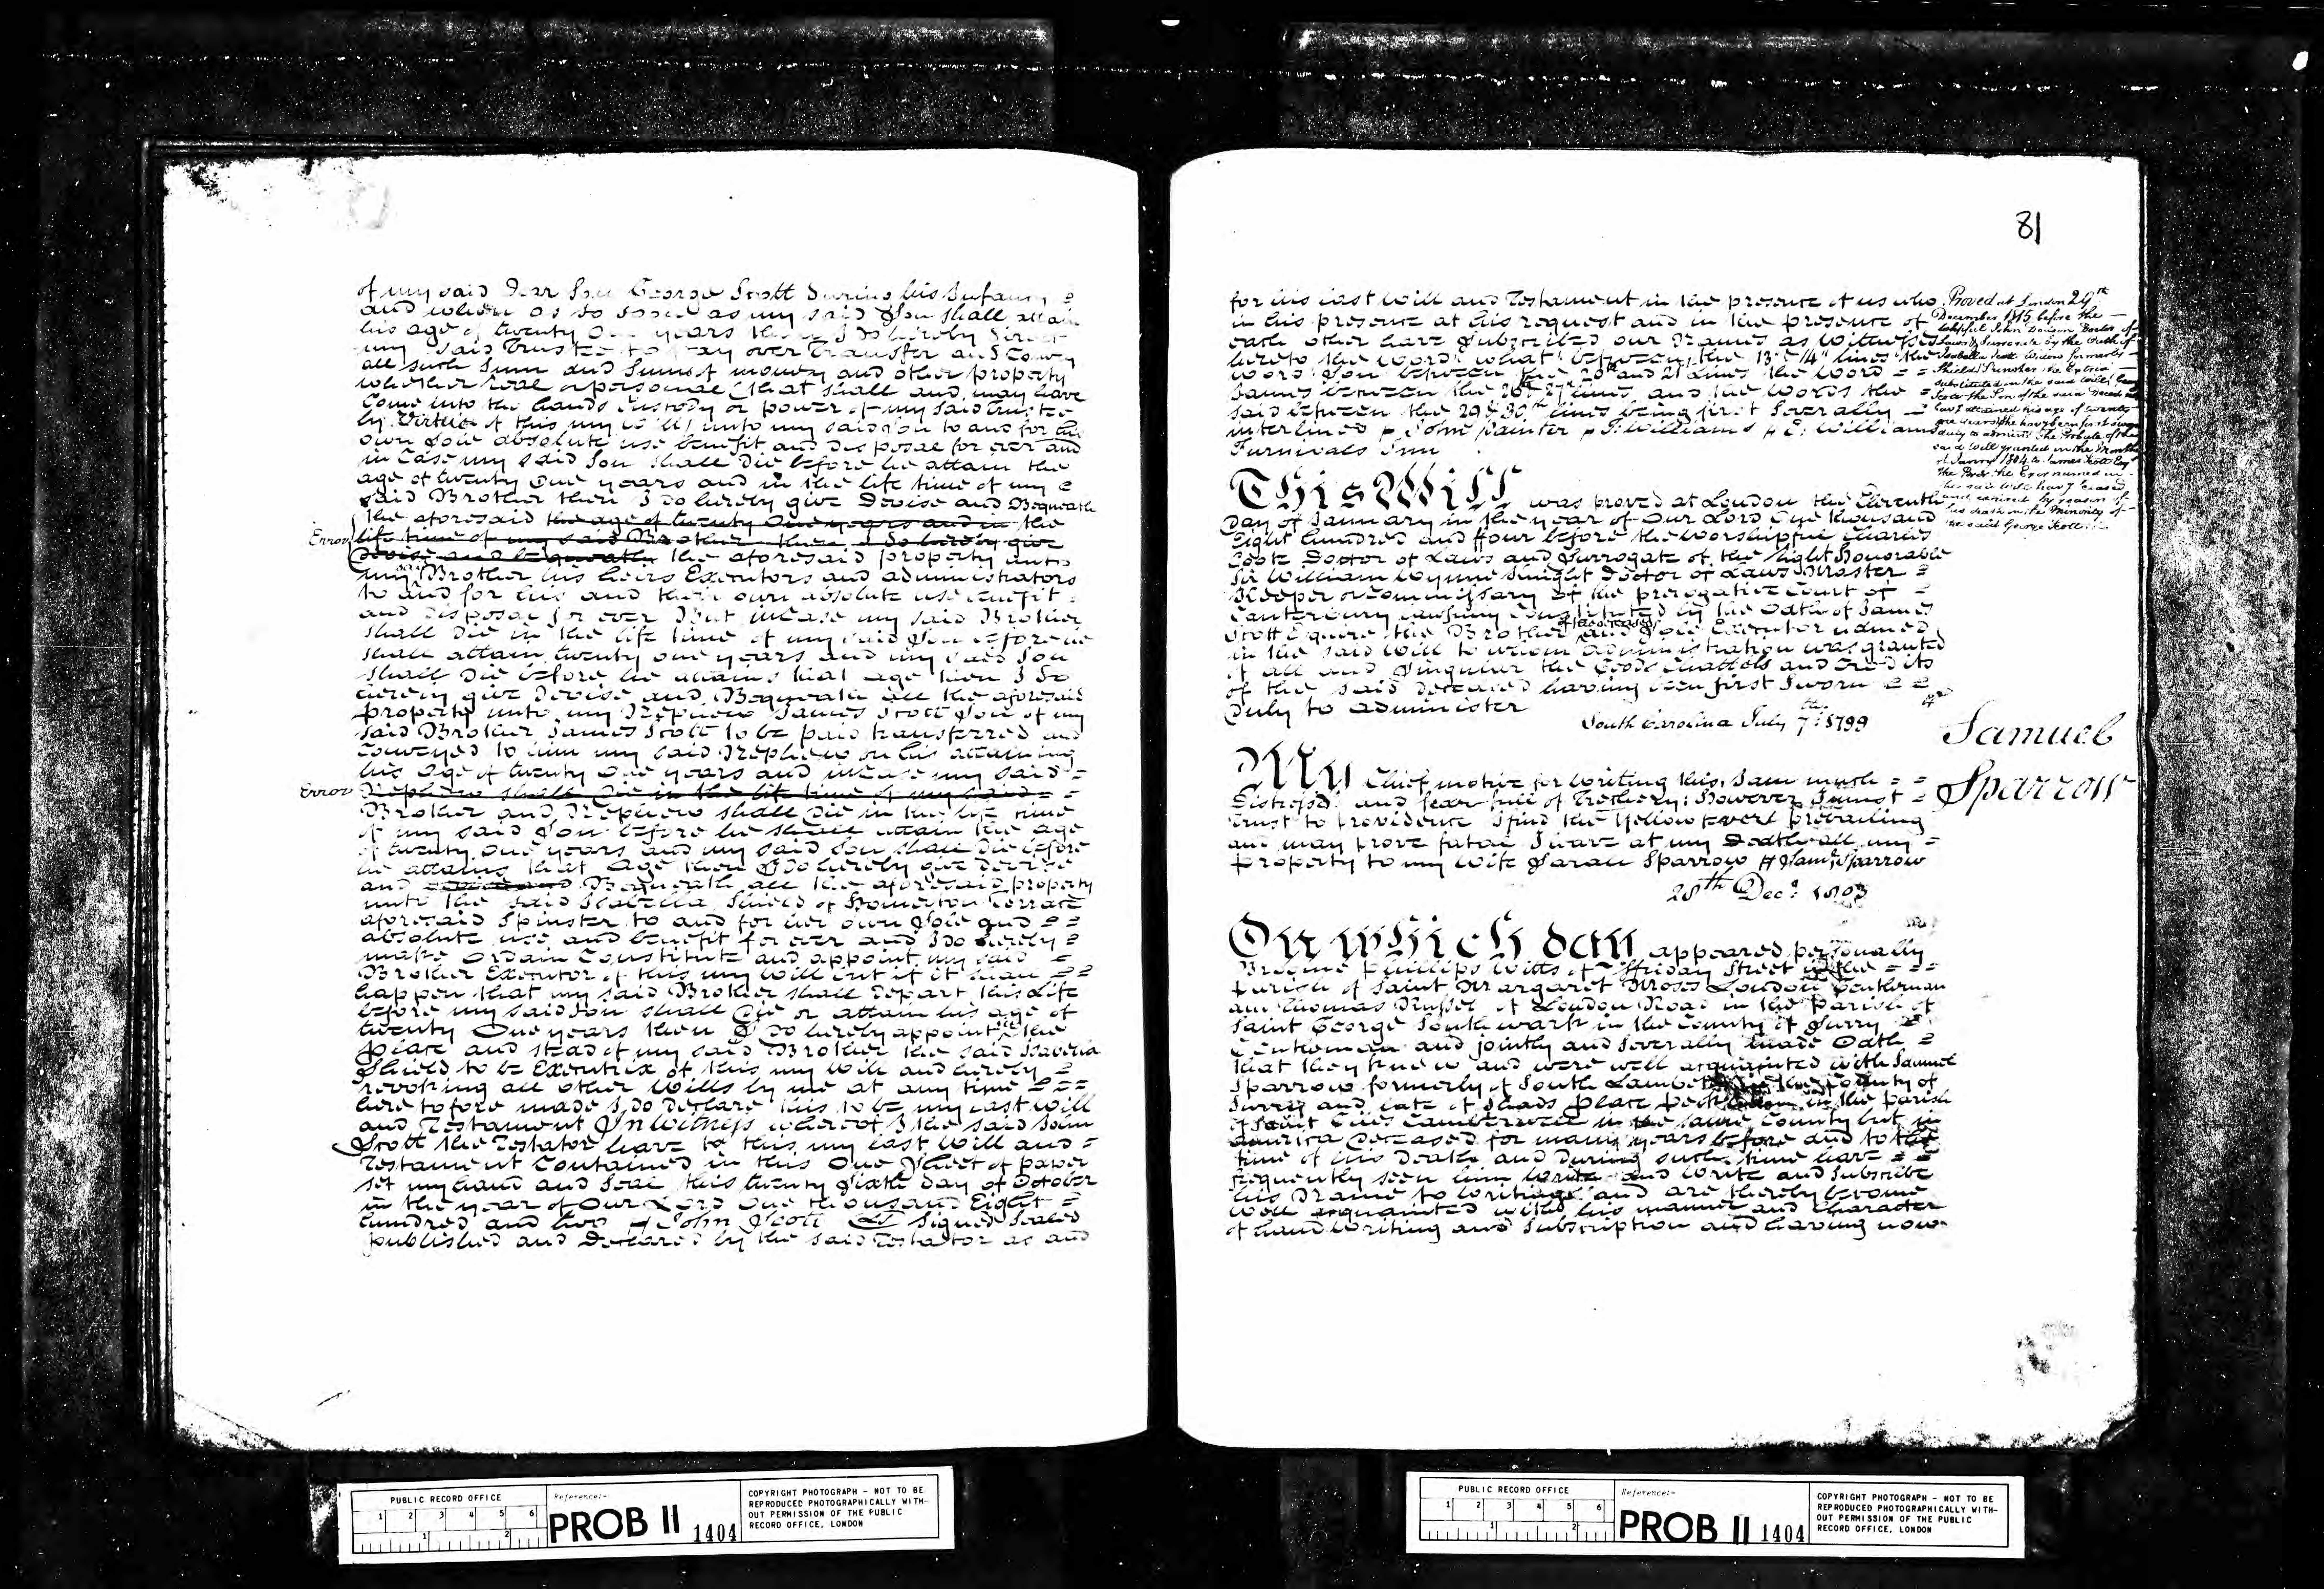 of my said Dear Son George Scott During his Infancy
and when as so soon as my said Son shall attain
his age of twenty One years then I Do hereby Direct
my said Trustee to pay over Transfer and Convey
all such Sum and Sums of money and other property
whether real or personal (that shall and may have
Come into the hands Custody or power of my said Trustee
by Virtue of this my Will) unto my said Son to and for his
own Sole absolute use benefit and disposal for ever and
in Case my said Son shall Die before he attain the
age of twenty One years and in the life time of my
said Brother then I Do hereby give Devise and Bequeath
the aforesaid the age of twenty One years and in the
Error life time of my said Brother then I Do hereby give
Devise and bequeath the aforesaid property unto
my said Brother his heirs Executors and administrators
to and for his and their own absolute use benefit
and disposal for ever But incase my said Brother
shall Die in the life time of my said Son before he
shall attain twenty one years and my said Son
shall Die before he attains that age then I Do
hereby give Devise and Bequeath all the aforesaid
property unto my Nephew James Scott Son of my
said Brother James Scott to be paid transferred and
Conveyed to him my said Nephew on his attaining
his age of twenty One years and incase my said
Error Nephew shall Die in the life time of my said
Brother and Nephew shall Die in the life time
of my said Son before he shall attain the age
of twenty One years and my said Son shall Die before
he attains that age then I Do hereby give devise
and Bequeath all the aforesaid property
unto the said Isabella Shield of Homerton Terrace
aforesaid Spinster to and for her own Sole and
absolute use and benefit for ever and I Do hereby
make Ordain Constitute and appoint my said
Brother Executor of this my Will but if it shall
happen that my said Brother shall Depart this Life
before my said Son shall Die or attain his age of
twenty One years then I Do hereby appoint in the
place and stead of my said Brother the said Isabella
Shield to be Executrix of this my Will and hereby
revoking all other Wills by me at any time
heretofore made I Do Declare this to be my last Will
and Testament In Witness whereof I the said John
Scott the Testator have to this my last Will and
Testament Contained in this One Sheet of paper
set my hand and Seal this twenty Sixth day of October
in the year of Our Lord One thousand Eight
hundred and two John Scott LS Signed Sealed
published and Declared by the said Testator as and
81
for his last Will and Testament in the presence of us who
in his presence at his request and in the presence of
each other have Subscribed our Names as Witnesses
hereto the Words what between the 13 & 14 lines the
word Son between the 20th and 21 Lines the Word
James between the 26th 27th lines and the Words the
said between the 29 & 30th lines being first Severally
interlined John Painter J: Williams E: Williams
Furnivals Inn
Proved at London 29th
December 1815 before the
Worshipful John Daubeny Doctor of
Laws & Surrogate by the Oath of
Isabella Scott Widow formerly
Shield Spinster the Extrix
substituted in the said Will George
Scott the Son of the said Deceased not
havg attained his age of twenty
one years she having been first sworn
duly to administer The Probate of the
said Will granted in the Month
of Janry 1804 to James Scott Esqr
the Brother the Exor named in
the said Will havg ceased
and expired by reason of
his death in the Minority of
the said George Scott
This Will was proved at London the Eleventh
Day of January in the year of Our Lord One thousand
Eight hundred and ffour before the Worshipful Charles
Coote Doctor of Laws and Surrogate of the Right Honorable
Sir William Wynne Knight Doctor of Laws Master
Keeper or Commissary of the prerogative Court of
Canterbury lawfully Constituted by the Oath of James
Scott Esquire the Brother of the deceased and Sole Executor named
in the said Will to whom administration was granted
of all and Singular the Goods Chattels and Credits
of the said deceased having been first Sworn
Duly to administer
South Carolina July 7th: 1799
Samuel
Sparrow
My Chief motive for Writing this, I am much
Distress'd and fear full of Treachery: However I must
trust to providence I find the Yellow Fever prevailing
and may prove fatal I leave at my Death all my
property to my Wife Sarah Sparrow Saml Sparrow
28th Decr 1803
On which day appeared personally
Phillips Witts of Friday Street in the
parish of Saint Margaret Moses London Gentleman
and Thomas Russel of London Road in the parish of
Saint George Southwark in the County of Surry
Gentleman and jointly and Severally made Oath
that they knew and were well acquainted with Samuel
Sparrow formerly of South Lambeth in the County of
Surry and late of Shads place Peckham in the parish
of Saint Giles Camberwell in the same County but in
America Deceased for many years before and to the
time of his Death and During such time have
frequently seen him Write and Write and Subscribe
his Name to Writings and are thereby become
well acquainted with his manner and Character
of handWriting and Subscription and having now
PUBLIC RECORD OFFICE
1 2 3 4 5 6
1 2
Reference:-
PROB 11 1404
COPYRIGHT PHOTOGRAPH - NOT TO BE
REPRODUCED PHOTOGRAPHICALLY WITH-
OUT PERMISSION OF THE PUBLIC
RECORD OFFICE, LONDON
PUBLIC RECORD OFFICE
1 2 3 4 5 6
1 2
Reference:-
PROB 11 1404
COPYRIGHT PHOTOGRAPH - NOT TO BE
REPRODUCED PHOTOGRAPHICALLY WITH-
OUT PERMISSION OF THE PUBLIC
RECORD OFFICE, LONDON